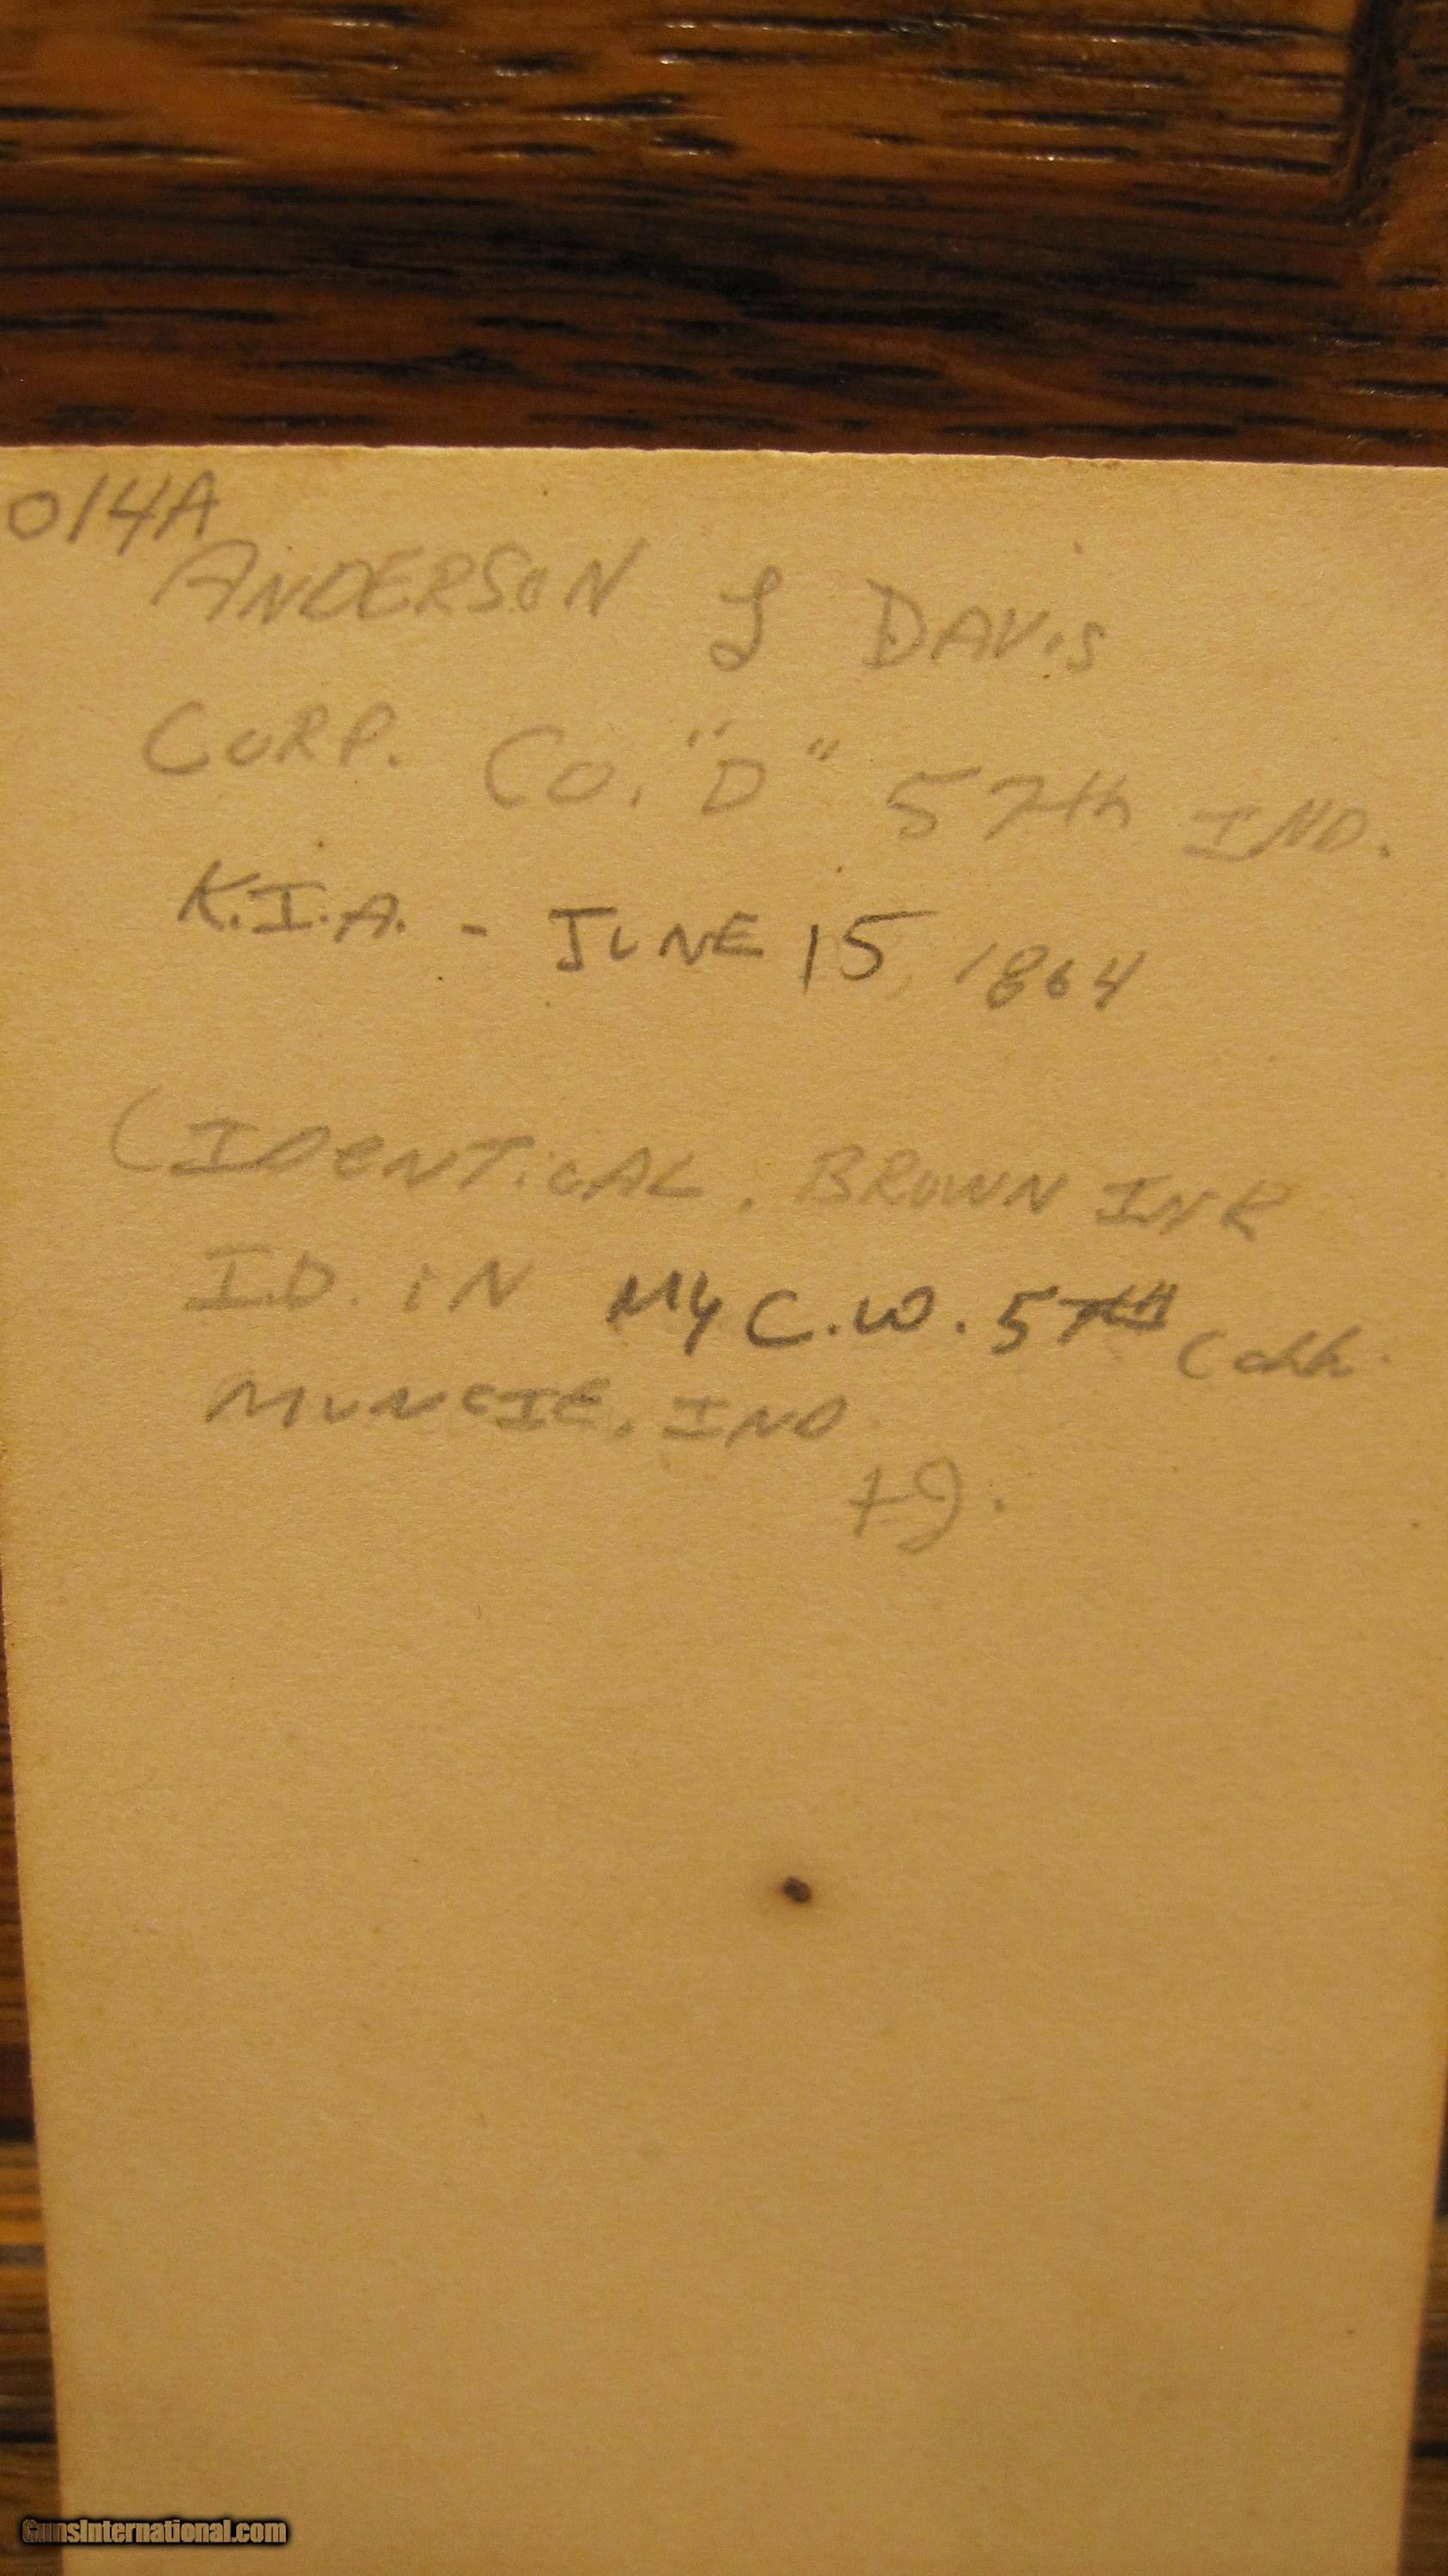 014A
ANDERSON L DAVIS
CORP. CO. "D" 57th IND.
K.I.A. - JUNE 15, 1864
(IDENTICAL. BROWN INK
I.D. IN MY C.W. 57TH Coll.
MUNCIE, IND
GunsInternational.com